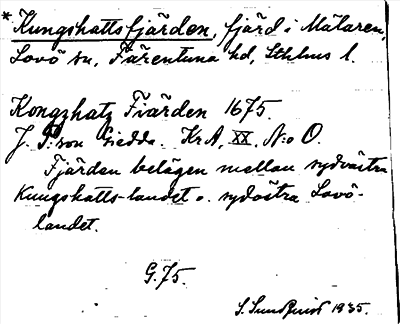 * Kungshattsfjärden, fjärd i Mälaren,
Lovö sn, Färentuna hd, Sthlms l.
Kongzhatz Fiärden 1675.
J. P:son Giedda. KrA, XX, N:o O.
Fjärden belägen mellan sydvästra
Kungshatts-landet o. sydöstra Lovö-
landet.
G.75.
S. Sundquist 1935.